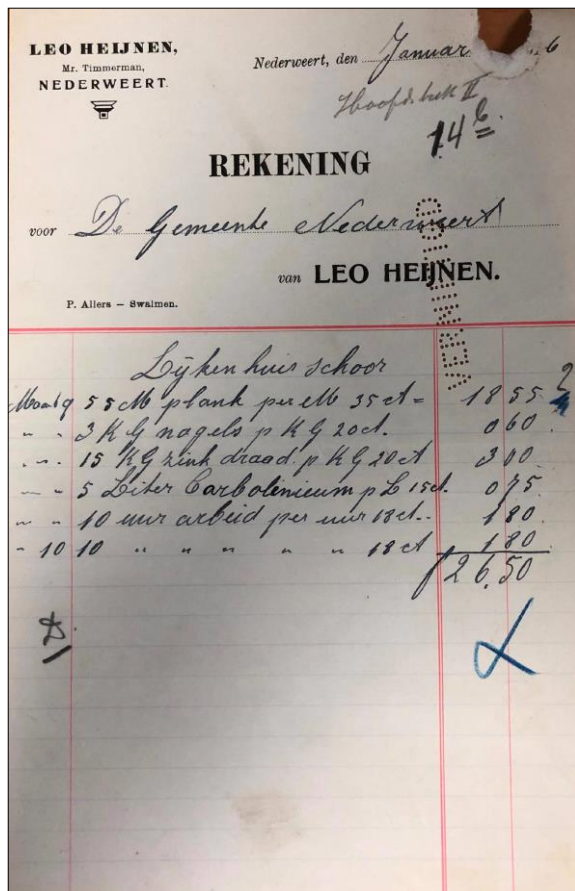 LEO HEIJNEN,
Mr. Timmerman,
NEDERWEERT.
Nederweert, den Januar 6
Hoofdstuk II
14 6
REKENING
voor De Gemeente Nederweert
van LEO HEIJNEN.
VERNIETIGD
P. Allers – Swalmen.
Lijkenhuis schoor
9 55 M plank per M 35 ct = 18 55
" " 3 KG nagels p KG 20 ct. 0 60
" " 15 KG zink draad p KG 20 ct 3 00
" " 5 Liter Carbolinieum p L 15 ct. 0 75
" " 10 uur arbeid per uur 18 ct. 1 80
" 10 10 " " " " 18 ct 1 80
f 26,50